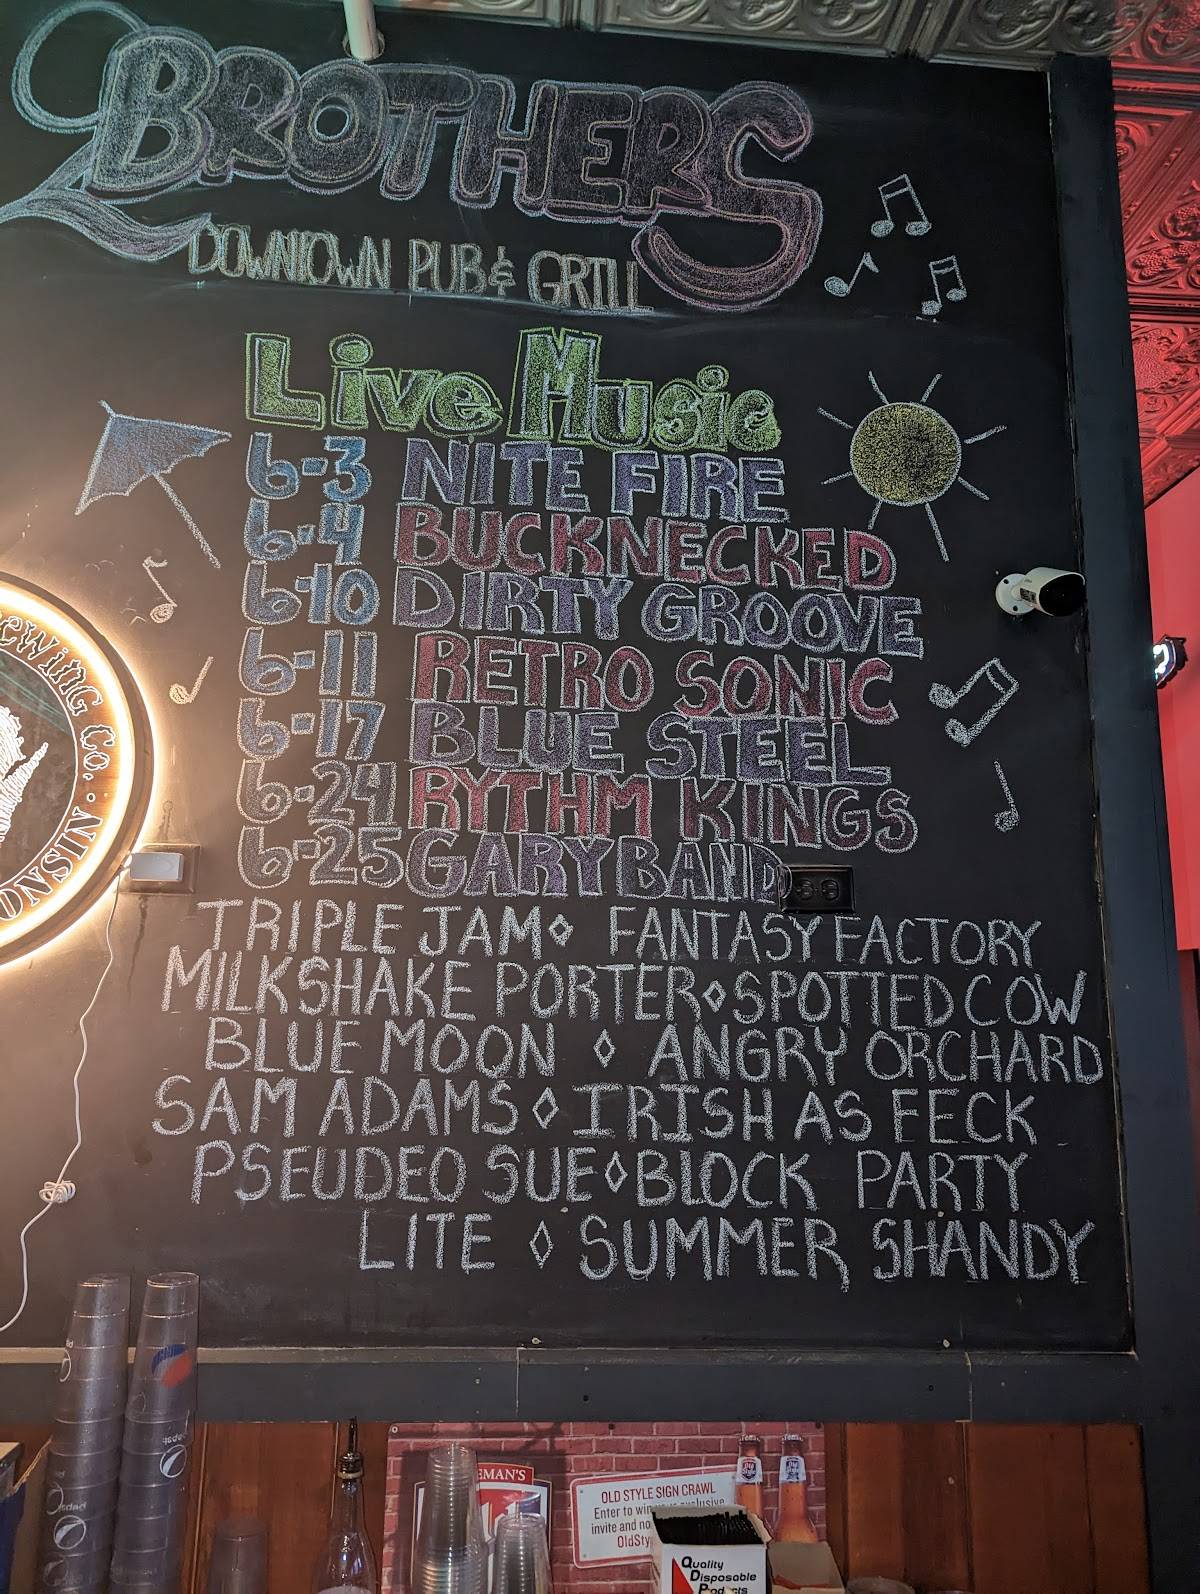 BROTHERS
DOWNTOWN PUB & GRILL
Live Music
6-3 NITE FIRE
6-4 BUCKNECKED
6-10 DIRTY GROOVE
6-11 RETRO SONIC
6-17 BLUE STEEL
6-24 RYTHM KINGS
6-25 GARY BAND
TRIPLE JAM ◇ FANTASY FACTORY
MILKSHAKE PORTER ◇ SPOTTED COW
BLUE MOON ◇ ANGRY ORCHARD
SAM ADAMS ◇ IRISH AS FECK
PSEUDEO SUE ◇ BLOCK PARTY
LITE ◇ SUMMER SHANDY
EWING CO. · 
ONSIN
EMAN'S
OLD STYLE SIGN CRAWL
Enter to win
invite and
OldSty
Quality
Disposable
Products
pepsi